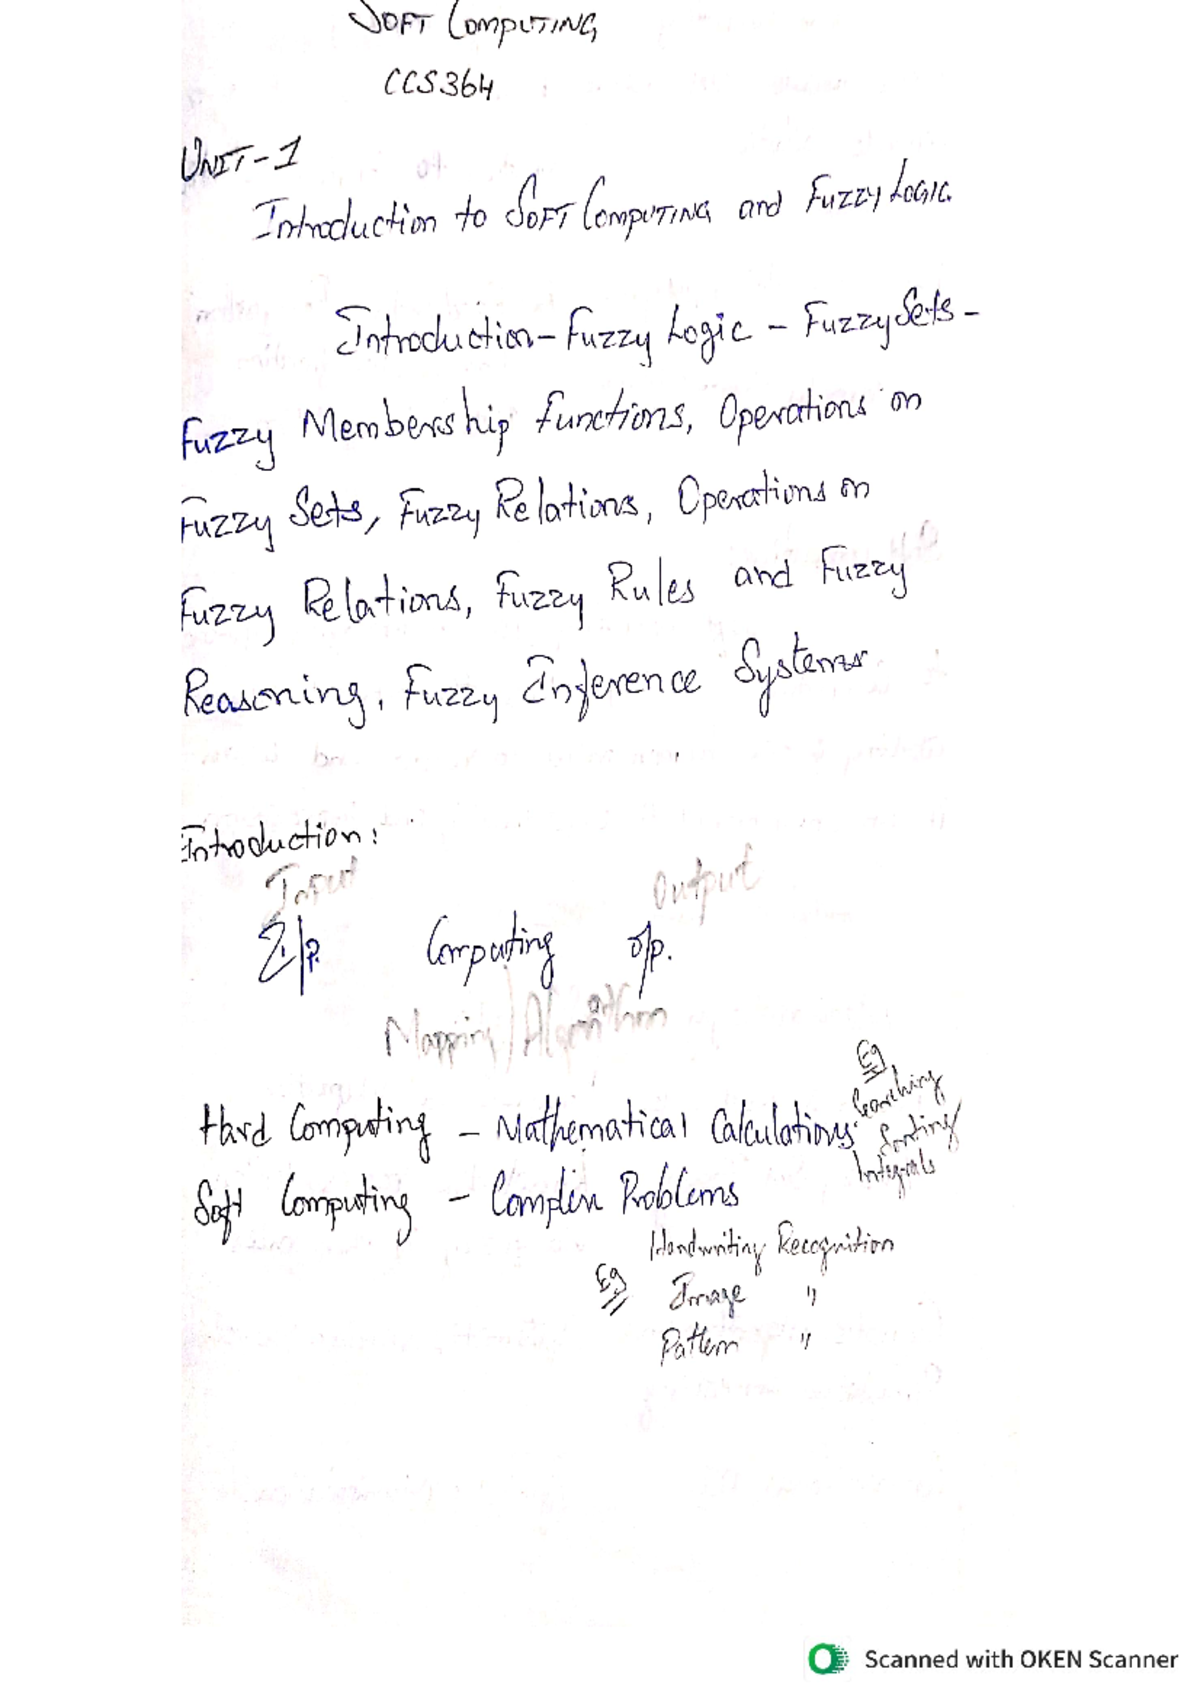 SOFT COMPUTING
CCS364
UNIT-1
Introduction to SOFT COMPUTING and FUZZY LOGIC
Introduction - Fuzzy Logic - Fuzzy Sets -
Fuzzy Membership functions, Operations on
Fuzzy Sets, Fuzzy Relations, Operations on
Fuzzy Relations, Fuzzy Rules and Fuzzy
Reasoning, Fuzzy Inference Systems
Introduction:
Input Output
I/P. Computing O/p.
Mapping/Algorithm
Eg
Searching
Hard Computing - Mathematical Calculations. Sorting
Integrals
Soft Computing - Complex Problems
Handwriting Recognition
Eg Image "
Pattern "
Scanned with OKEN Scanner